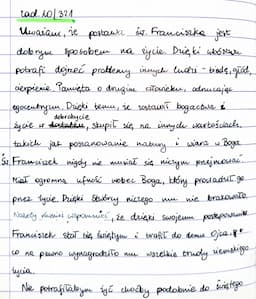 zad 10/321
Uważam, że postawa św. Franciszka jest
dobrym sposobem na życie. Dzięki
potrafi dojrzeć problemy innych ludzi - biedę, głód,
cierpienie. Pamięta o drugim człowieku, odrzucając
egocentryzm. Dzięki temu, że zostawił bogactwo i
życie w dobrobycie, skupił się na innych wartościach,
takich jak poszanowanie natury i wiara w Boga.
Św. Franciszek nigdy nie musiał się niczym przejmować.
Miał ogromną ufność wobec Boga, który prowadził go
przez życie. Dzięki Stwórcy niczego mu nie brakowało.
Należy również wspomnieć, że dzięki swojemu postępowaniu
Franciszek stał się świętym i trafił do domu Ojca,
co na pewno wynagrodziło mu wszelkie trudy ziemskiego
życia.
Nie potrafiłabym żyć choćby podobnie do świętego